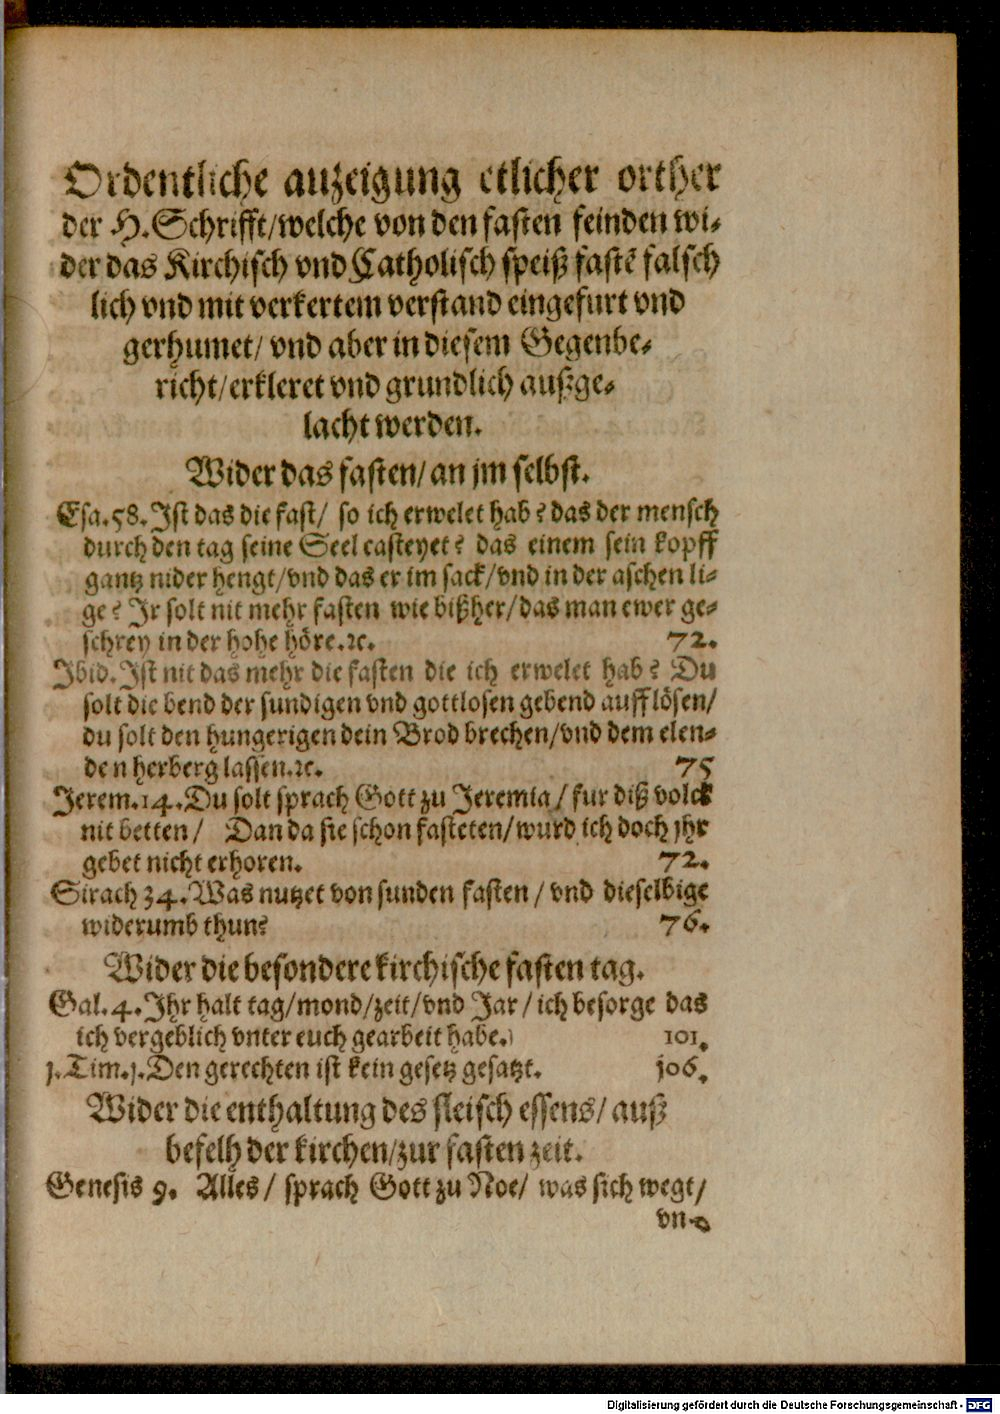 Ordentliche anzeigung etlicher orther
der H. Schrifft/welche von den fasten feinden wi⸗
der das Kirchisch vnd Catholisch speiß fastē falsch
lich vnd mit verkertem verstand eingefurt vnd
gerhumet/ vnd aber in diesem Gegenbe⸗
richt/erkleret vnd grundlich außge⸗
lacht werden.
Wider das fasten/an jm selbst.
Esa.58.Ist das die fast/ so ich erwelet hab? das der mensch
durch den tag seine Seel casteyet? das einem sein kopff
gantz nider hengt/vnd das er im sack/vnd in der aschen li⸗
ge? Ir solt nit mehr fasten wie bißher/das man ewer ge⸗
schrey in der hohe höre.ꝛc. 72.
Ibid.Ist nit das mehr die fasten die ich erwelet hab? Du
solt die bend der sundigen vnd gottlosen gebend aufflösen/
du solt den hungerigen dein Brod brechen/vnd dem elen⸗
den herberg lassen.ꝛc. 75
Jerem.14.Du solt sprach Gott zu Jeremia/fur diß volck
nit betten/ Dan da sie schon fasteten/wurd ich doch jhr
gebet nicht erhoren. 72.
Sirach 34.Was nutzet von sunden fasten/vnd dieselbige
widerumb thun? 76.
Wider die besondere kirchische fasten tag.
Gal.4.Ihr halt tag/mond/zeit/vnd Jar/ich besorge das
ich vergeblich vnter euch gearbeit habe.) 101.
j.Tim.j.Den gerechten ist kein gesetz gesatzt. j06.
Wider die enthaltung des fleisch essens/auß
befelh der kirchen/zur fasten zeit.
Genesis 9. Alles/ sprach Gott zu Noe/ was sich wegt/
vnd
Digitalisierung gefördert durch die Deutsche Forschungsgemeinschaft - DFG